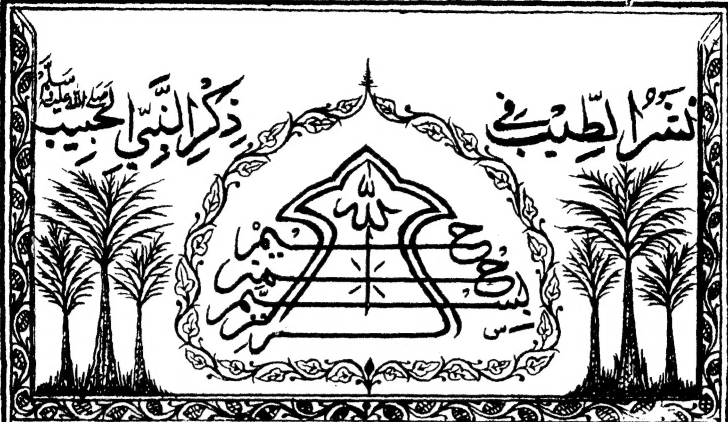 نشر الطیب فی
ذِکْرِ النَّبِیِّ الحبیب صلی الله علیه وسلم
بسم الله الرحمن الرحیم